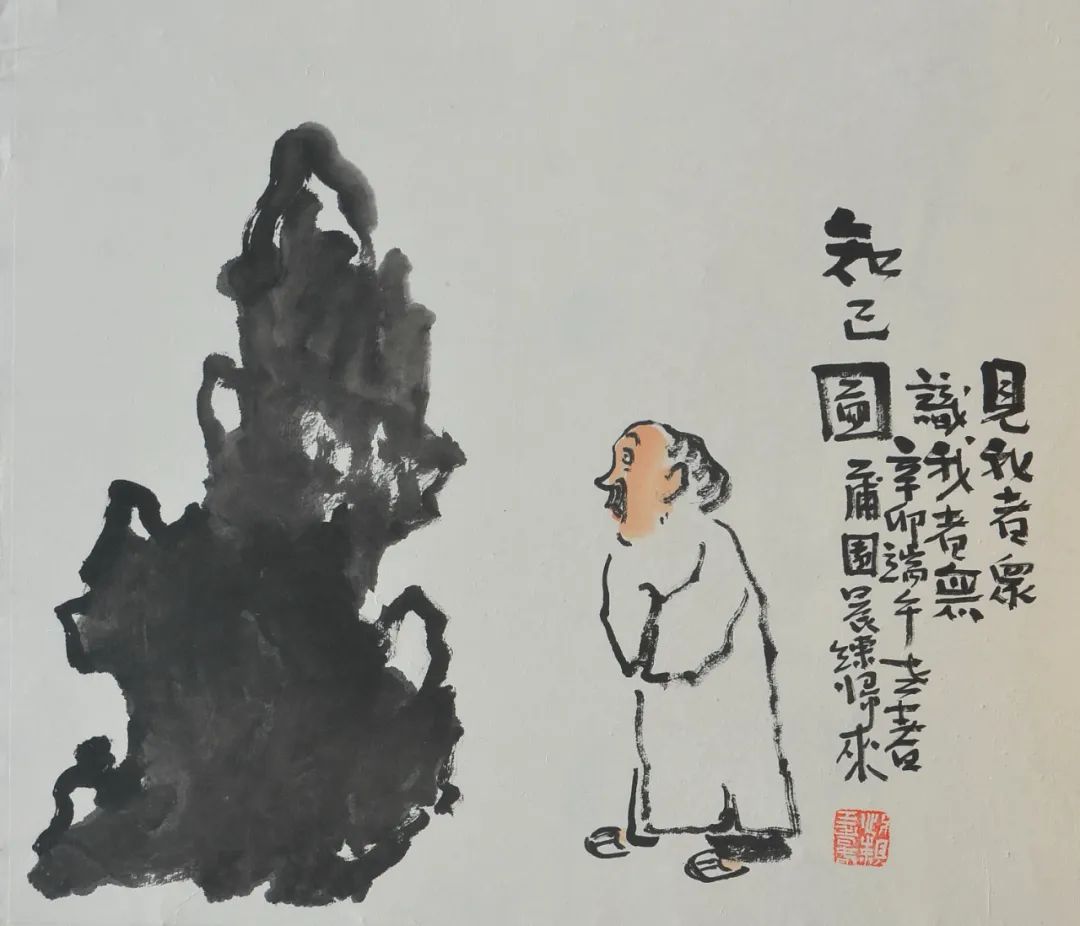 見我者眾
識我者無
辛卯端午
知己圖 蒲園晨練歸來